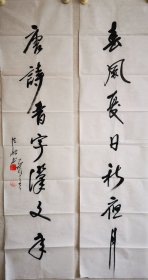 春风夏日秋夜月
唐詩晋字漢文章